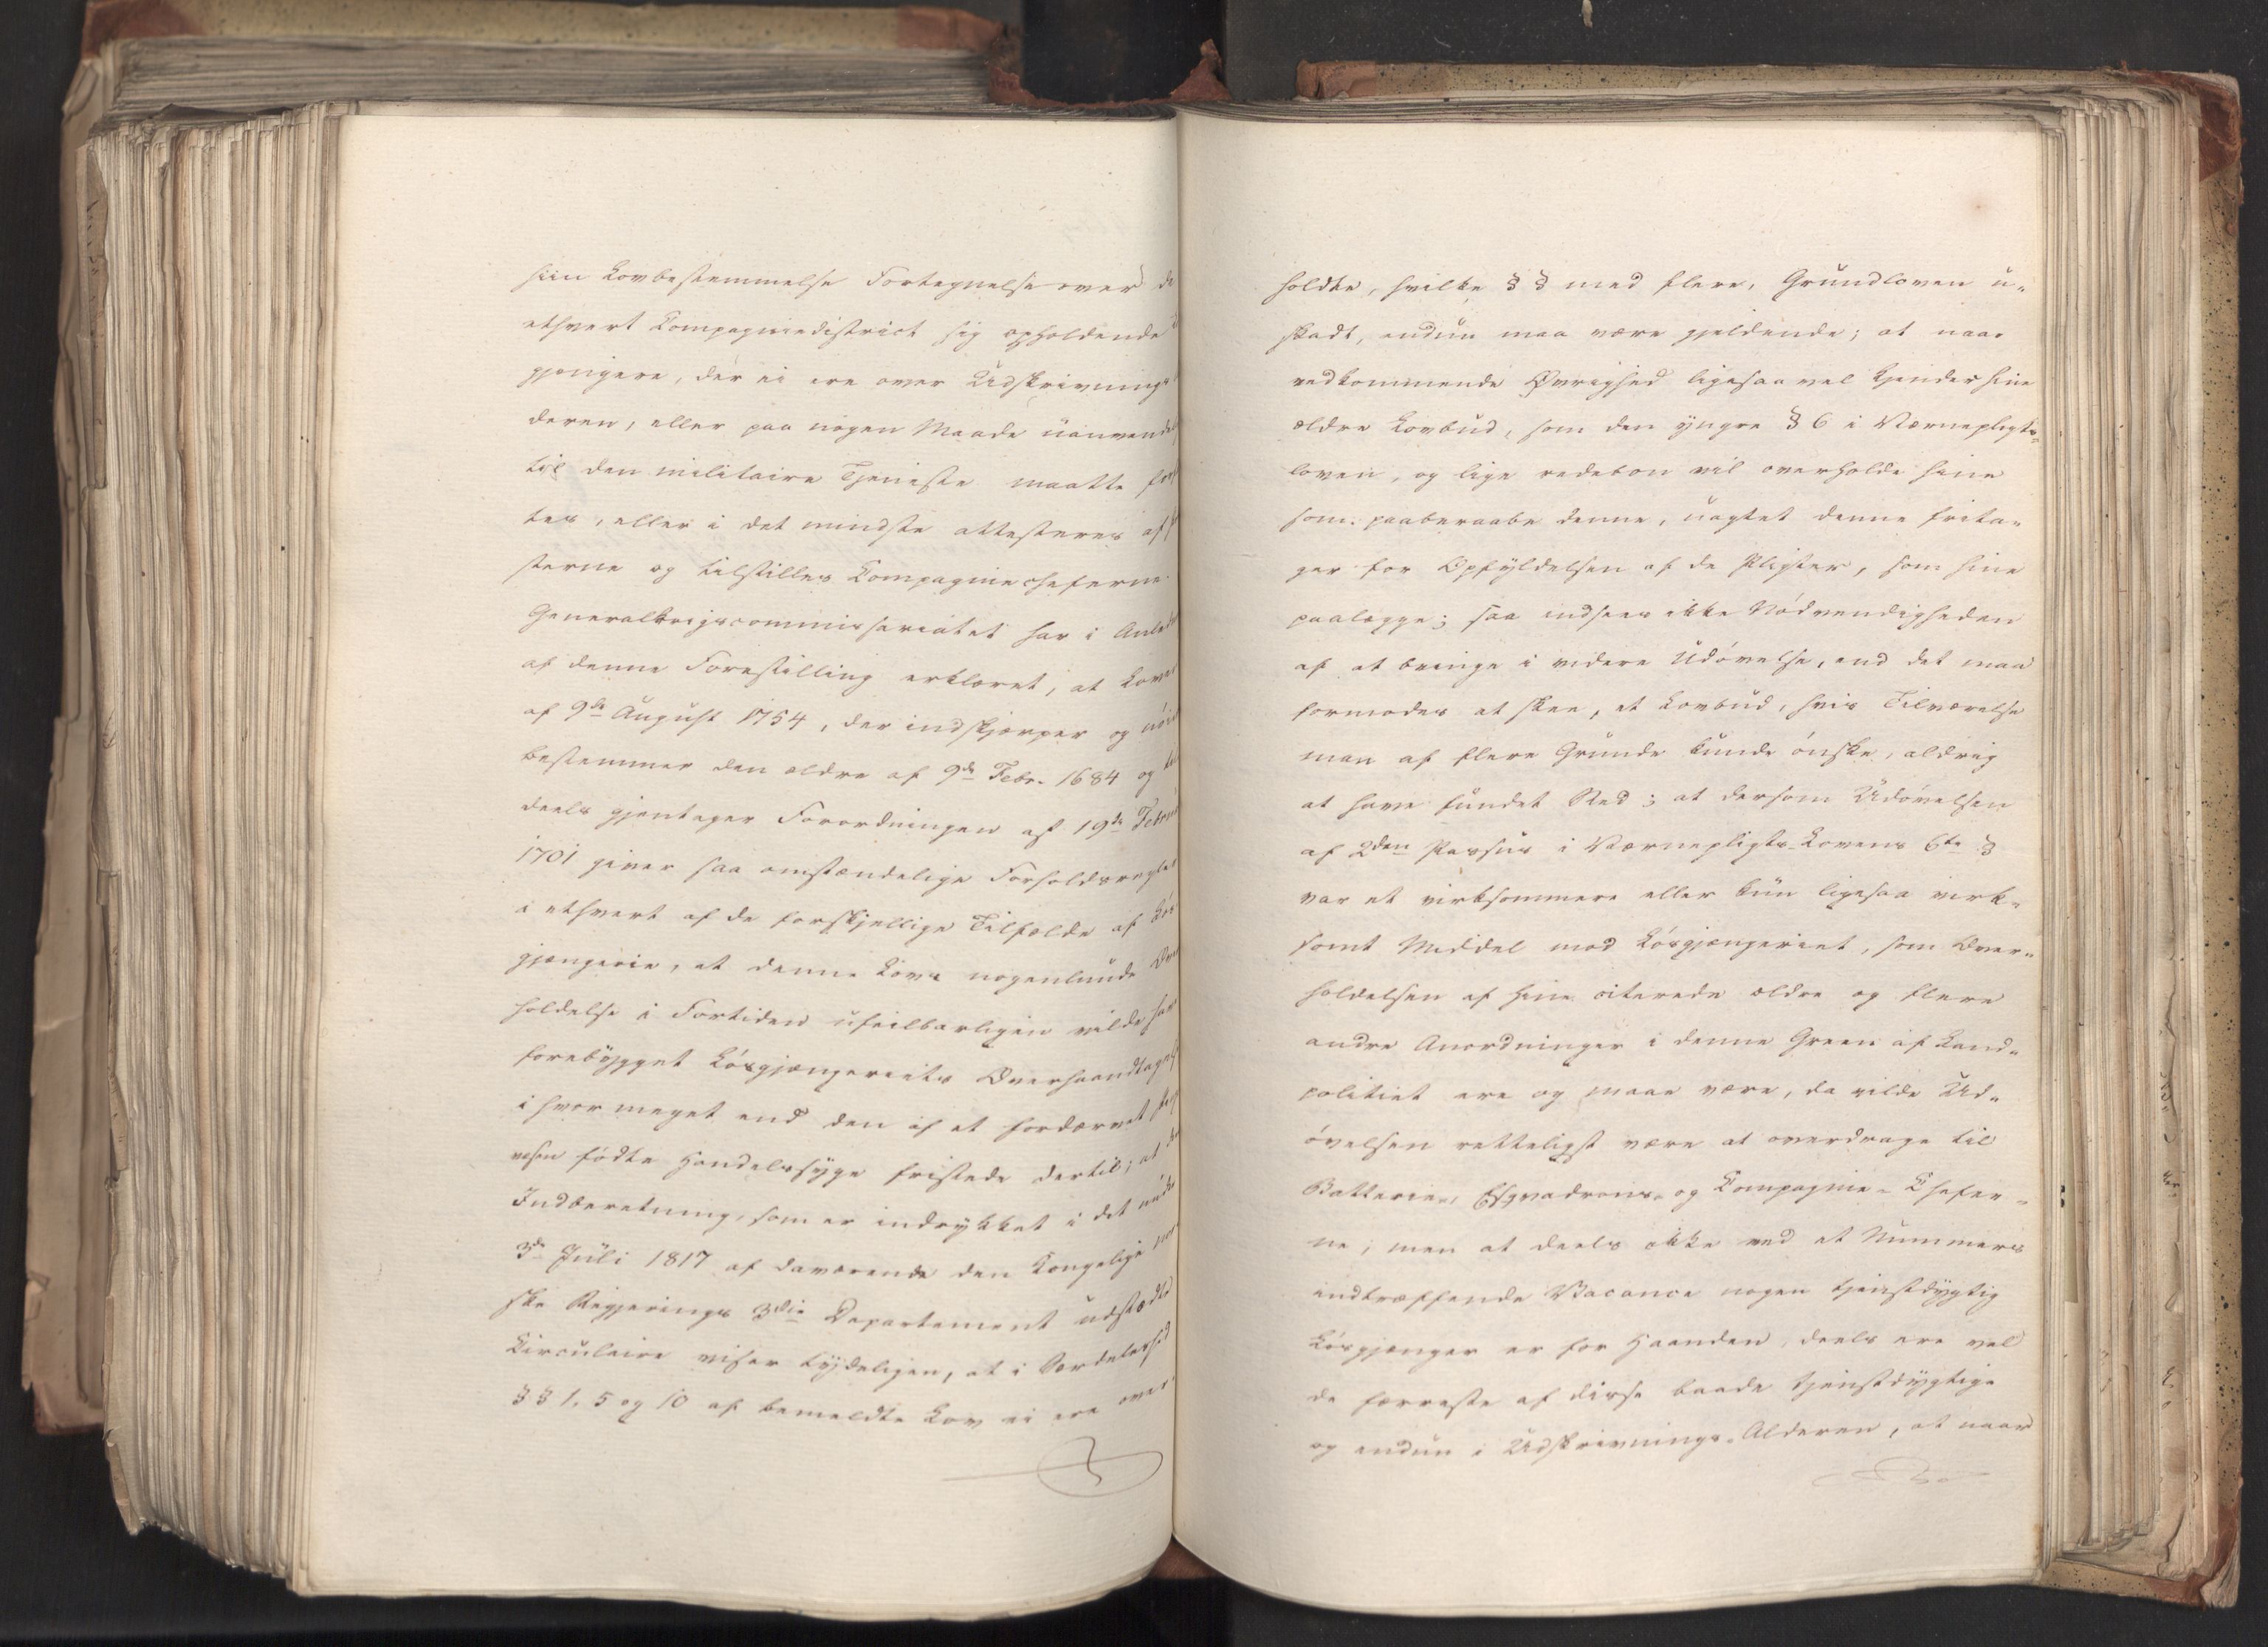 siin Lovbestemmelse Fortegnelse over de
ethvert Compagniedistrict sig opholdende
gjengere, der ei ere over Udskrivnings
deren, eller paa nogen Maade uanvendel
til den militaire Tjeneste maatte for
tes, eller i det mindste attesteres af
sterne og tilstilles Compagniecheferne.
Generalkrigscommissariatet har i Anled
af denne Forestilling erklæret, at Loven
af 9de August 1754, der indskjærper og nöie
bestemmer den ældre af 9de Febr. 1684 og
deels gjentager Forordningen af 19de Febru
1701 giver saa omstændelige Forholdsregler
i ethvert af de forskjellige Tilfælde af Lös
gjængerie, at denne Lovs nogenlunde Over
holdelse i Fortiden ufeilbarligen vilde have
forebygget Lösgjængeriets Overhaandtagelse
i hvor meget end den af et fordærvet
vesen födte Handelssyge fristede dertil; at
Indberetning, som er indrykket i det
3de Juli 1817 af daværende den Kongelige nor
ske Regjerings 3die Departement udstædte
Circulaire viser tydeligen, at i Særdeleshed
§§ 1, 5 og 10 af bemeldte Lov ei ere over-
holdte, hvilke §§ med flere, Grundloven u-
skadt, endnu maa være gjeldende; at naar
vedkommende Øvrighed ligesaavel kjender hine
ældre Lovbud, som den yngre § 6 i Værnepligts-
loven, og lige redebon vil overholde hine
som paaberaabe denne, uagtet denne frita-
ger for Opfyldelsen af de Pligter, som hine
paalægge; saa indsees ikke Nödvendigheden
af at bringe i videre Udövelse, end det maa
formodes at skee, et Lovbud, hvis Tilværelse
man af flere Grunde kunde önske, aldrig
at have fundet Sted; at dersom Udövelsen
af 2den Passus i Værnepligts-Lovens 6te §
var et virksommere eller kun ligesaa virk-
somt Middel mod Lösgjængeriet, som Over-
holdelsen af hine citerede ældre og flere
andre Anordninger i denne Green af Land-
politiet ere og maae være, da vilde Ud-
övelsen retteligst være at overdrage til
Batterie-, Esqvadrons- og Compagnie-Chefer-
ne; men at deels ikke ved et Nummers
indtræffende Vacance nogen tjenstdygtig
Lösgjænger er for Haanden, deels ere vel
de færreste af disse baade tjenstdygtige
og endnu i Udskrivnings-Alderen, at naar